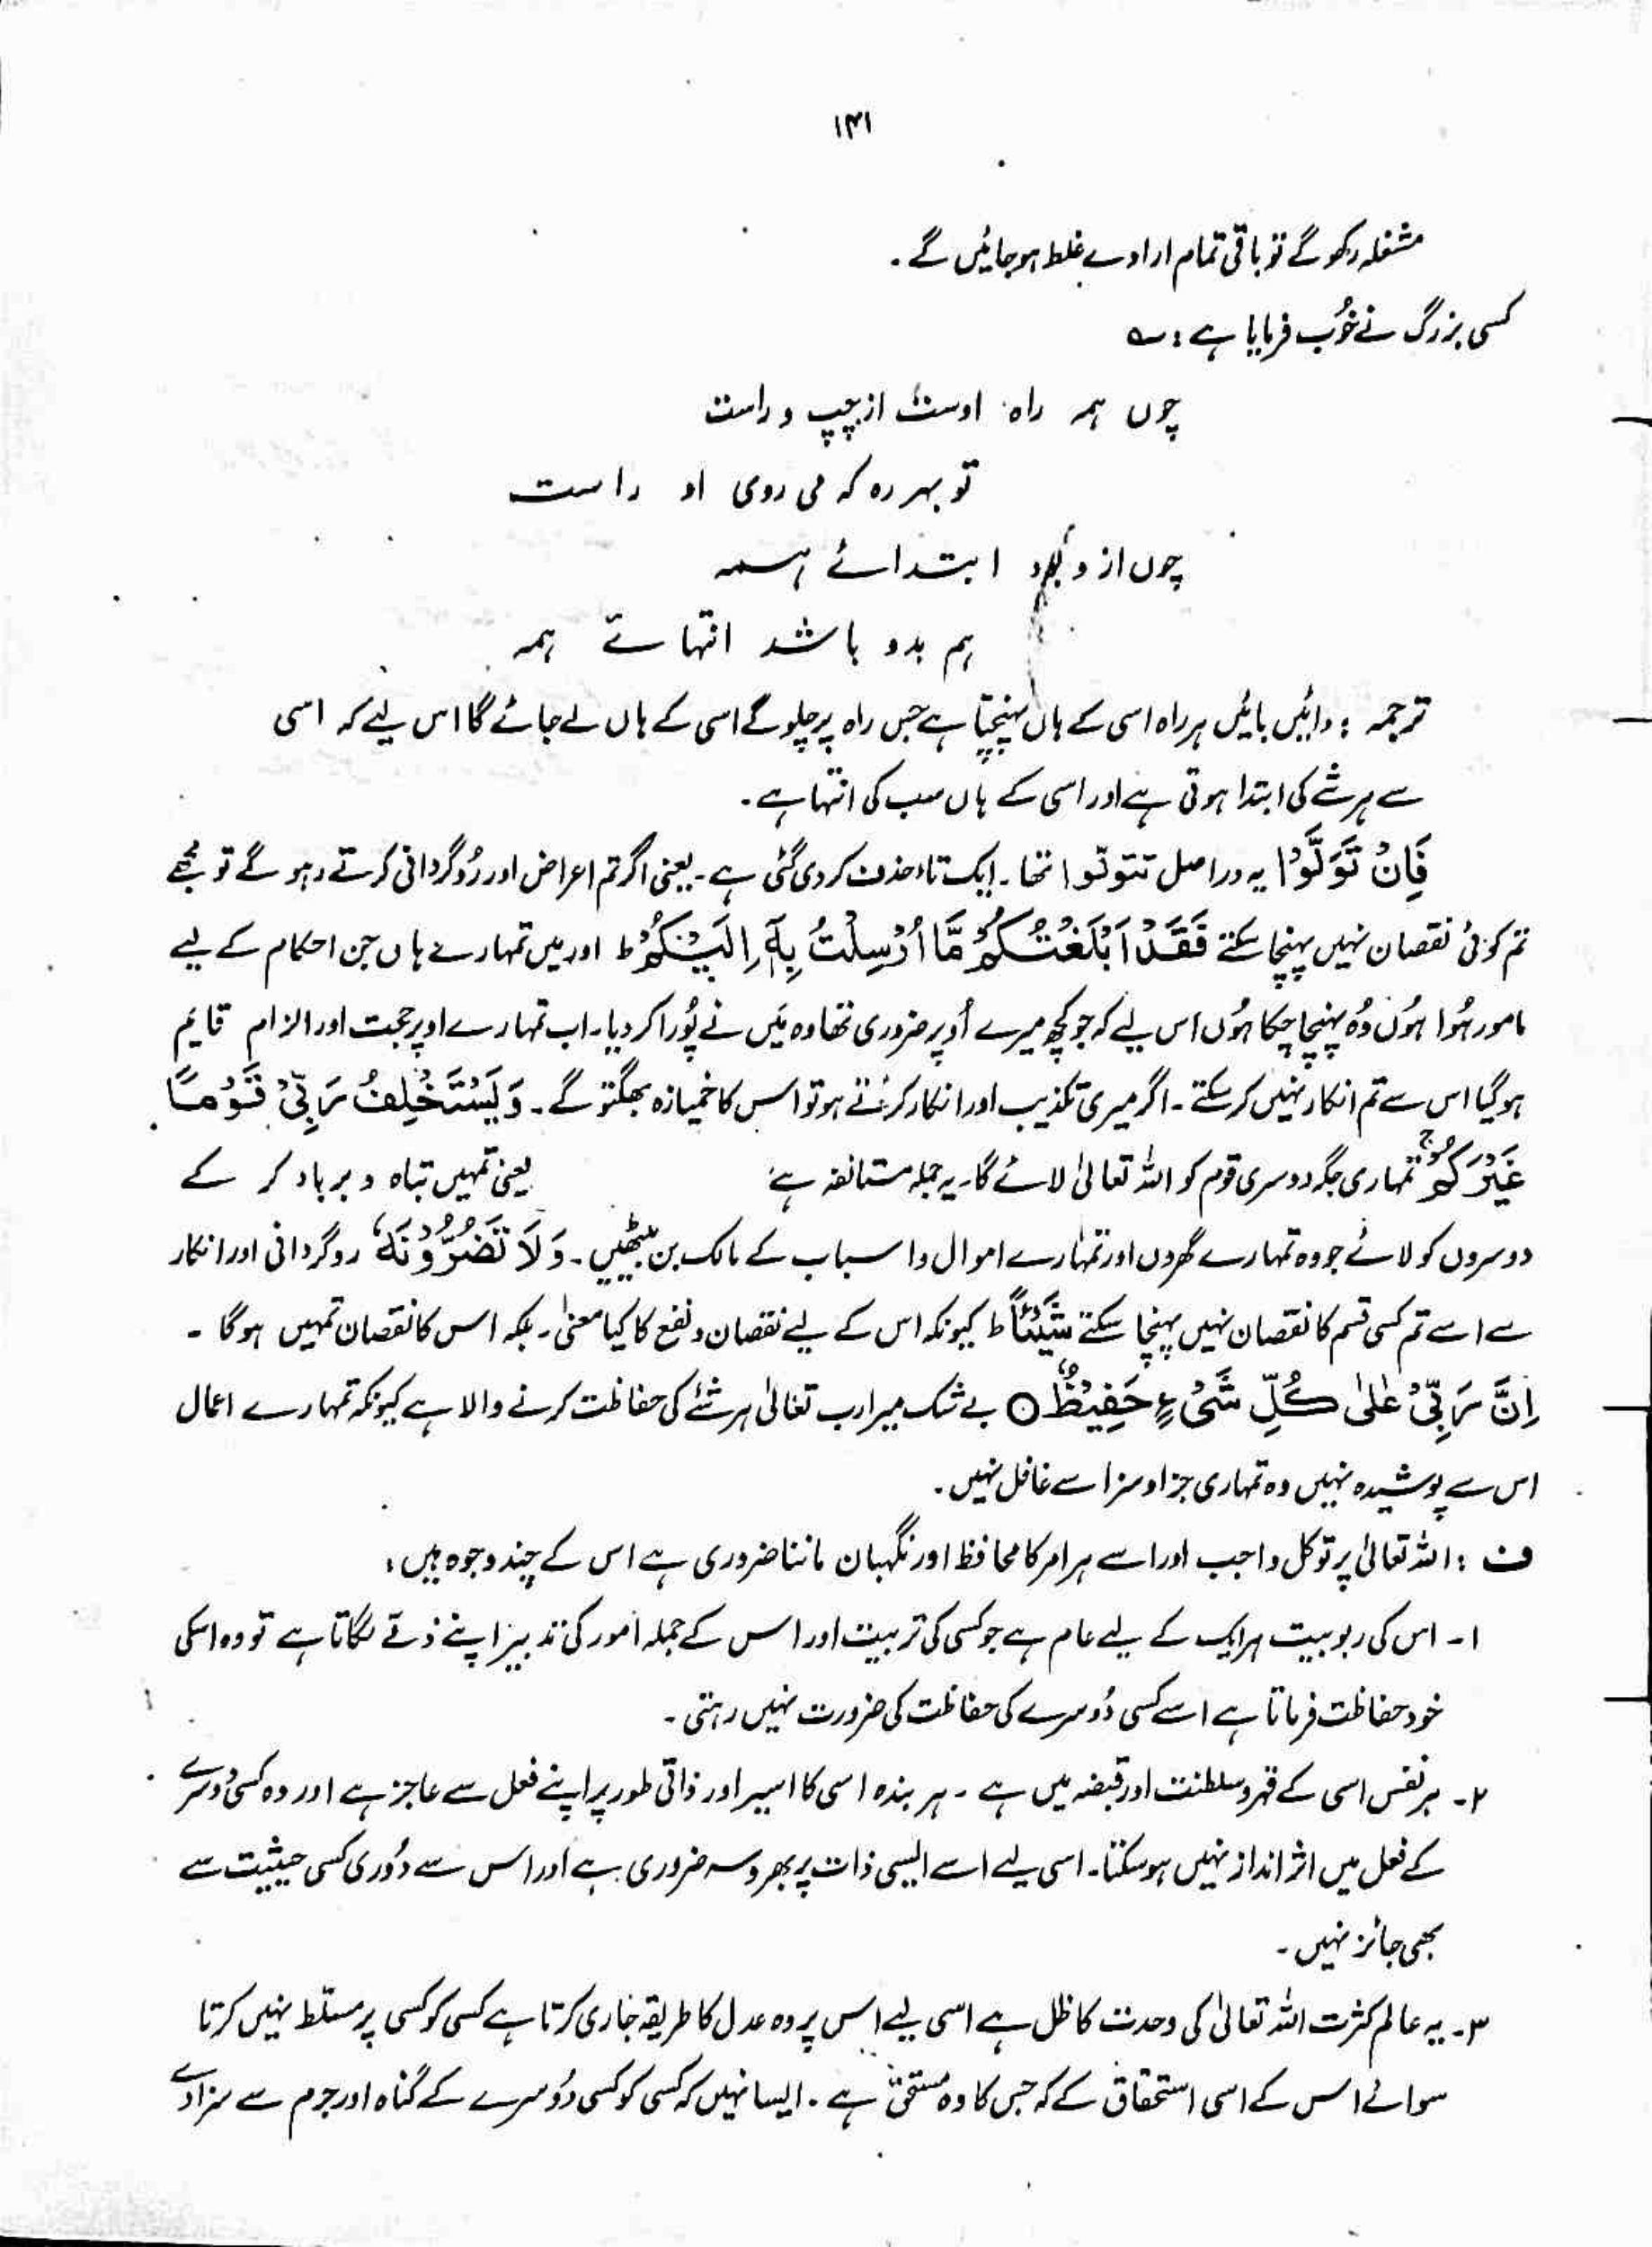 ۱۴۱
مشغلہ رکھو گے تو باقی تمام ارادے غلط ہوجائیں گے ۔
کسی بزرگ نے خُوب فرمایا ہے : ؎
چوں ہمہ راہ اوست از چپ و راست
تو بہر رہ کہ می روی او راست
چوں از و بود ابتدائے ہمہ
ہم بدو باشد انتہائے ہمہ
ترجمہ : دائیں بائیں ہر راہ اسی کے ہاں پہنچتا ہے جس راہ پر چلو گے اسی کے ہاں لے جائے گا اس لیے کہ اسی
سے ہر شے کی ابتدا ہوتی ہے اور اسی کے ہاں سب کی انتہا ہے ۔
فَاِنْ تَوَلَّوْا یہ دراصل تتولوا تھا ۔ ایک تاء حذف کر دی گئی ہے ۔ یعنی اگر تم اعراض اور رُوگردانی کرتے رہو گے تو مجھے
تم کوئی نقصان نہیں پہنچا سکتے فَقَدْ اَبْلَغْتُكُمْ مَّا اُرْسِلْتُ بِهٖٓ اِلَیْكُمْ ط اور میں تمہارے ہاں جن احکام کے لیے
مامور ہُوا ہُوں وُہ پہنچا چکا ہُوں اس لیے کہ جو کچھ میرے اُوپر ضروری تھا وہ مَیں نے پُورا کر دیا ۔ اب تمہارے اوپر حجت اور الزام قایم
ہو گیا اس سے تم انکار نہیں کر سکتے ۔ اگر میری تکذیب اور انکار کرتے ہو تو اس کا خمیازہ بھگتو گے ۔ وَیَسْتَخْلِفُ رَبِّیْ قَوْمًا
غَیْرَكُمْ ج تمہاری جگہ دوسری قوم کو اللہ تعالیٰ لائے گا ۔ یہ جملہ مستانفہ ہے یعنی تمہیں تباہ و برباد کر کے
دوسروں کو لائے جو وہ تمہارے گھروں اور تمہارے اموال و اسباب کے مالک بن بیٹھیں ۔ وَلَا تَضُرُّوْنَهٗ روگردانی اور انکار
سے اسے تم کسی قسم کا نقصان نہیں پہنچا سکتے شَیْئًا ط کیونکہ اس کے لیے نقصان و نفع کا کیا معنیٰ ۔ بلکہ اس کا نقصان تمہیں ہوگا ۔
اِنَّ رَبِّیْ عَلٰی كُلِّ شَیْءٍ حَفِیْظٌ ○ بے شک میرا رب تعالیٰ ہر شئے کی حفاظت کرنے والا ہے کیونکہ تمہارے اعمال
اس سے پوشیدہ نہیں وہ تمہاری جزا و سزا سے غافل نہیں ۔
ف : اللہ تعالیٰ پر توکل واجب اور اسے ہر امر کا محافظ اور نگہبان ماننا ضروری ہے اس کے چند وجوہ ہیں :
۱ - اس کی ربوبیت ہر ایک کے لیے عام ہے جو کسی کی تربیت اور اس کے جملہ امور کی تدبیر اپنے ذمّے لگاتا ہے تو وہ اسکی
خود حفاظت فرماتا ہے اسے کسی دُوسرے کی حفاظت کی ضرورت نہیں رہتی ۔
۲ - ہر نفس اسی کے قہر و سلطنت اور قبضہ میں ہے ۔ ہر بندہ اسی کا اسیر اور ذاتی طور پر اپنے فعل سے عاجز ہے اور وہ کسی دُوسرے
کے فعل میں اثر انداز نہیں ہو سکتا ۔ اسی لیے اسے ایسی ذات پر بھروسہ ضروری ہے اور اس سے دُوری کسی حیثیت سے
بھی جائز نہیں ۔
۳ - یہ عالم کثرت اللہ تعالیٰ کی وحدت کا ظل ہے اسی لیے اس پر وہ عدل کا طریقہ جاری کرتا ہے کسی کو کسی پر مسلّط نہیں کرتا
سوائے اس کے اسی استحقاق کے کہ جس کا وہ مستحق ہے ۔ ایسا نہیں کہ کسی کو کسی دُوسرے کے گناہ اور جرم سے سزا دے